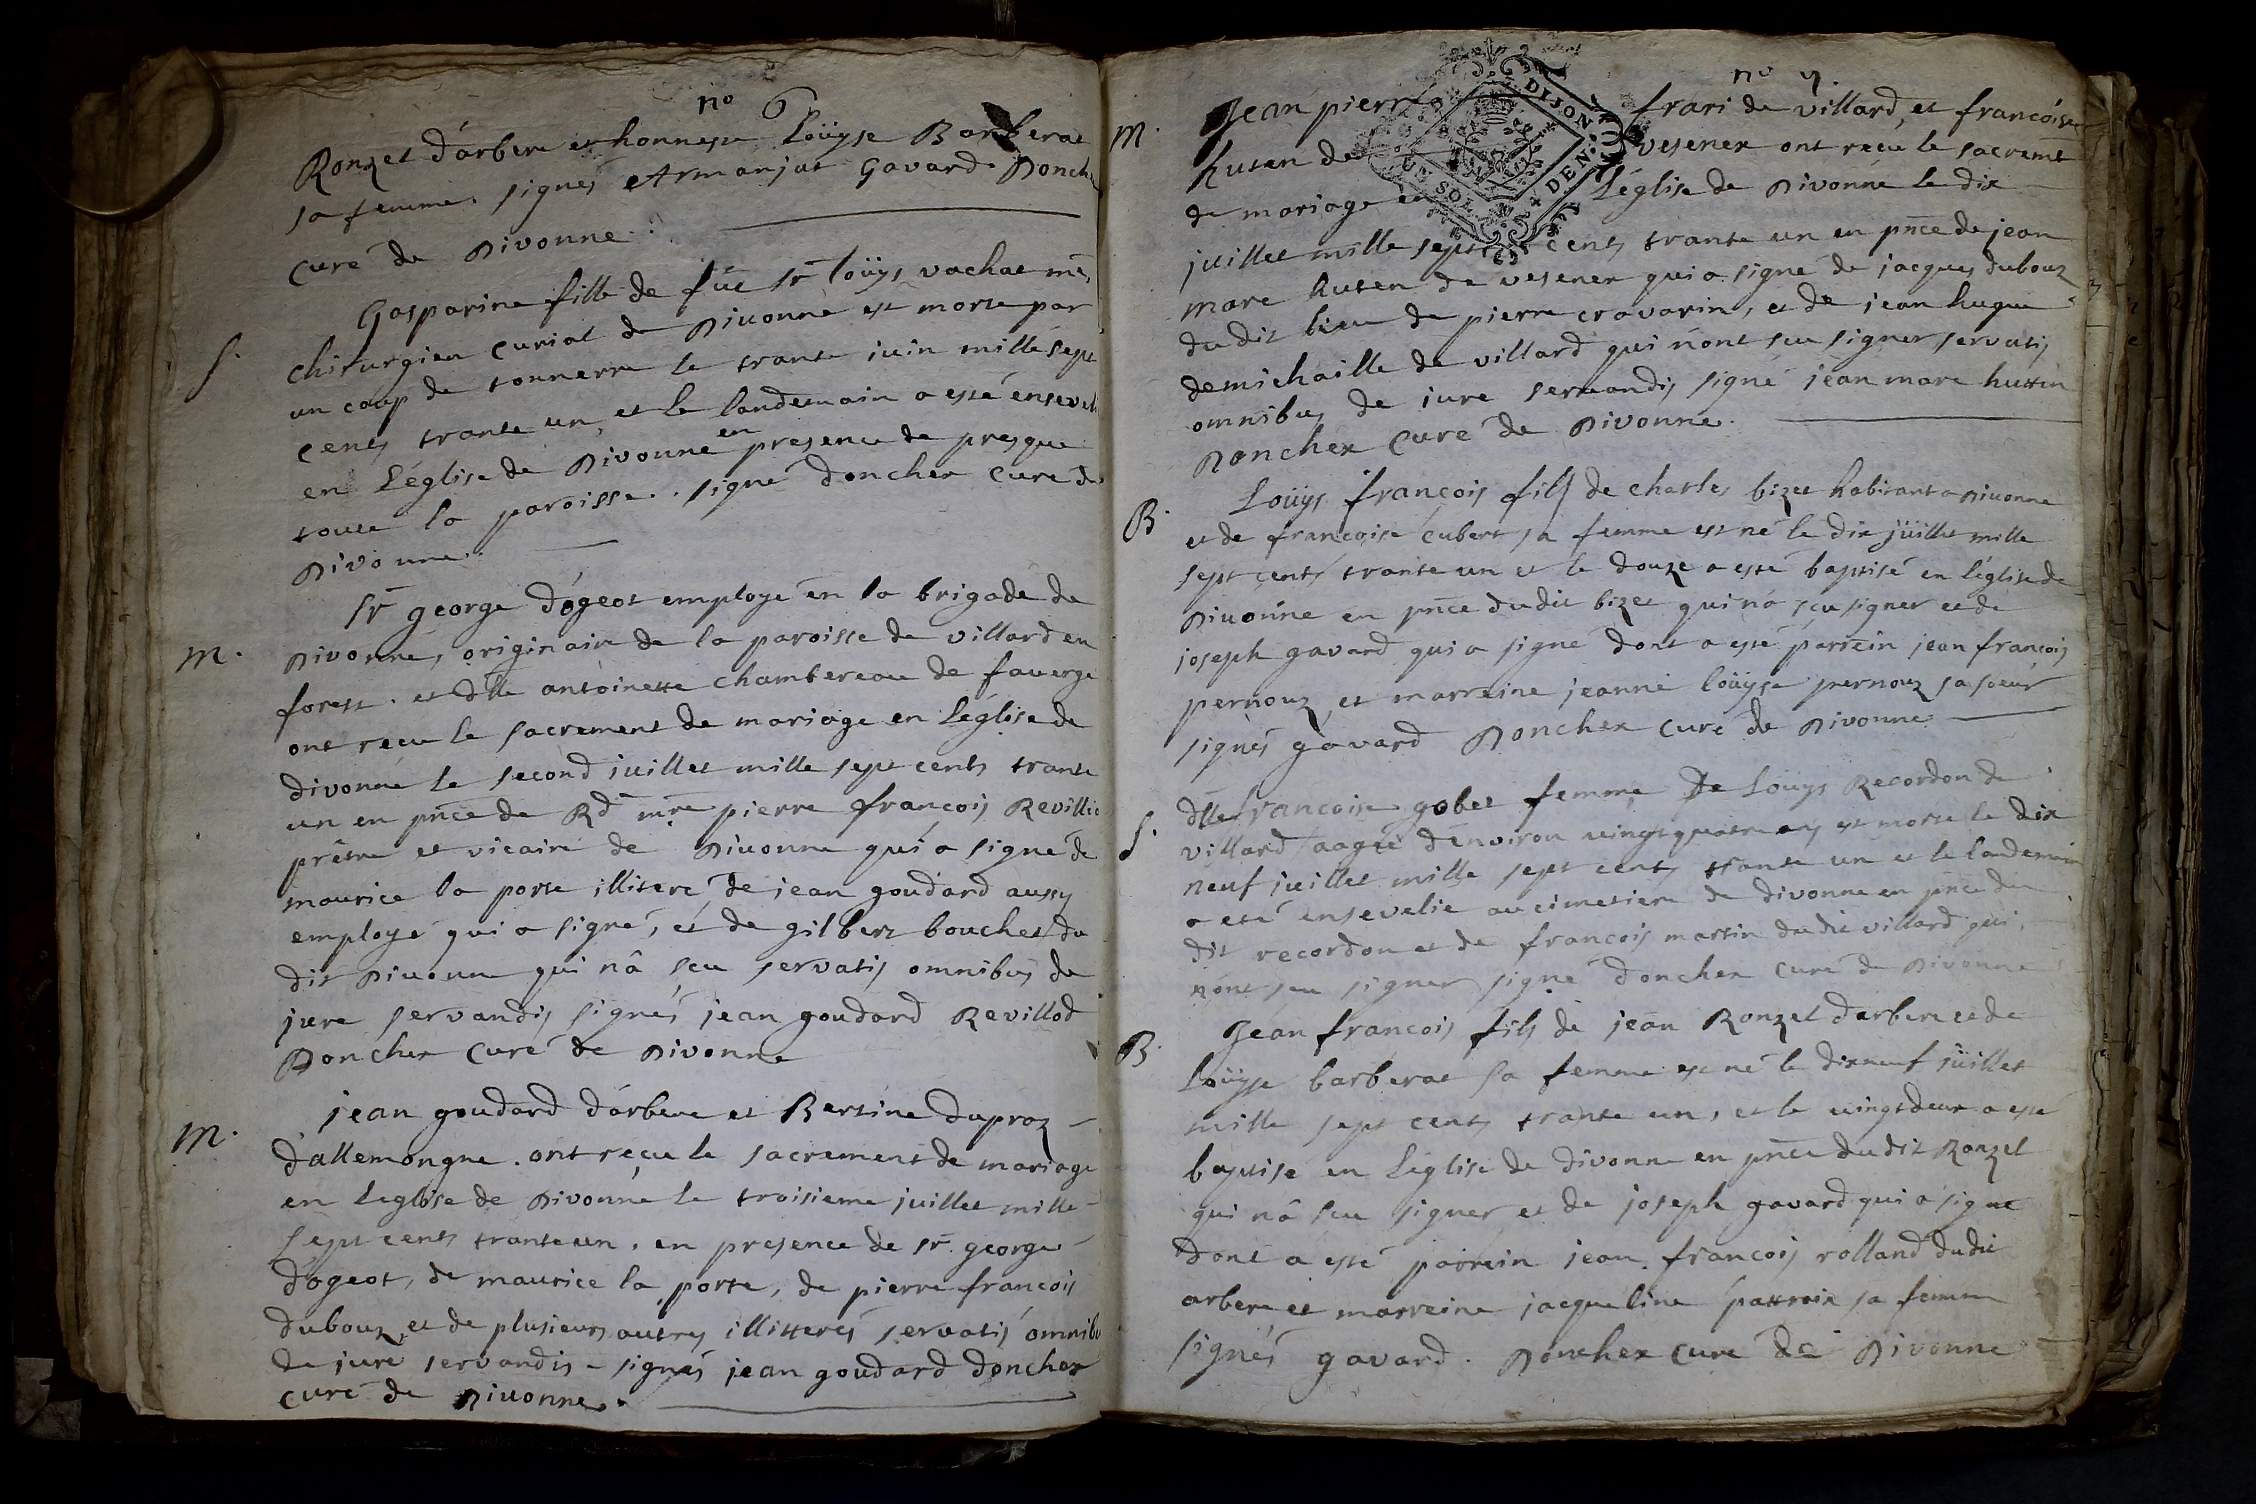 no 6
Ronzel d'arbere et honneste Loüyse Barberat
sa femme. signés Armanjat Gavard. Donche
curé de Divonne.
Gasparine fille de fût sr loüys vachat me
S.
chirurgien curial de Divonne est morte par
un coup de tonnerre le trante iuin mille sept
cents trante un et le landemain a esté ensevel
en L'église de Divonne en presence de presque
toute la paroisse. signé Doncher curé de
Divonne.
sr george d'ogeot employé en la brigade de
M.
Divonne, originaire de la paroisse de villard en
forest. et dlle antoinette chambereau de faverge
ont reçu le sacrement de mariage en L'église de
divonne le second iuillet mille sept cents trante
un en pnce de Rd mre pierre françois Revillio
prêtre et vicaire de Divonne qui a signé de
maurice la porte illiteré, de jean goudard aussy
employé qui a signé, et de gilbert bouchet du
dit Divonne qui n'a sçu servatis omnibus de
jure servandis signés jean goudard Revillod
Doncher curé de Divonne
jean goudard d'arbere et Bertine duproz
M.
d'allemongne. ont reçu le sacrement de mariage
en leglise de Divonne le troisieme juillet mille
sept cents tranteun, en presence de sr george
d'ogeot, de maurice la porte, de pierre françois
dubouz et de plusieurs autres illitterés servatis omnibu
de jure servandis - signés jean goudard doncher
curé de Divonne.
no 7.
M.
Jean pierre frari de villard, et françoise
huten de vesenex ont reçu le sacremt
de mariage en L'église de Divonne le dix
DIJON
UN SOL
DEN.
juillet mille sept cents trante un en pnce de jean
marc huten de vesenex qui a signé de jacques dubouz
dudit lieu de pierre cravarin, et de jean hugue
demichaille de villard qui n'ont sçu signer servatis
omnibus de iure servandis signé jean marc huttin
Doncher Curé de Divonne.
B.
Loüys françois fils de charles bizet habitant a Divonne
et de françoise cubert sa femme est né le dix jüillet mille
sept cents trante un et le douze a esté baptisé en léglise de
Divonne en pnce dudit bizet qui n'a sçu signer et de
joseph gavard qui a signé dont a esté parrein jean françois
pernouz et marreine jeanne loüyse pernouz sa soeur
signés gavard Doncher curé de Divonne
S.
dlle francoise gobet femme de Loüys Recordon de
villard aagée d'environ vingt quatre ans est morte le dix
neuf juillet mille sept cents trante un et le landemain
a esté ensevelie au cimetiere de divonne en pnce du
dit recordon et de francois martin dudit villard qui
n'ont sçu signer signé doncher curé de Divonne
B.
Jean francois fils de jean Ronzel darbere et de
Loüyse barberat sa femme est né le dixneuf jüillet
mille sept cents trante un, et le vingtdeux a esté
baptisé en L'église de divonne en pnce dudit Ronzel
qui n'a sçu signer et de joseph gavard qui a signé
dont a esté parrein jean francois rolland dudit
arbere et marreine jacqueline sa femme
signés gavard. Doncher curé de Divonne